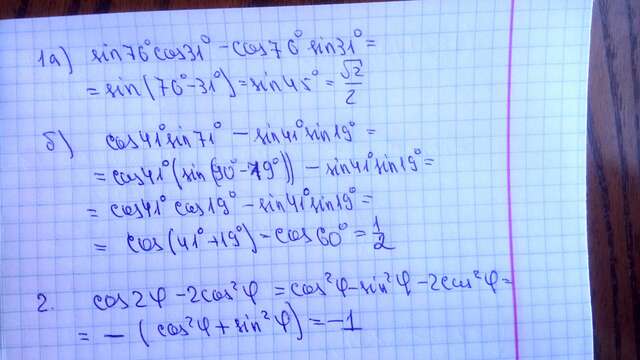 1а) sin76°cos31° - cos76°sin31° =
= sin(76°-31°) = sin45° = √2/2
б) cos41°sin71° - sin41°sin19° =
= cos41°(sin(90°-19°)) - sin41°sin19° =
= cos41°cos19° - sin41°sin19° =
= cos(41°+19°) = cos60° = 1/2
2. cos2φ - 2cos²φ = cos²φ - sin²φ - 2cos²φ =
= - (cos²φ + sin²φ) = -1